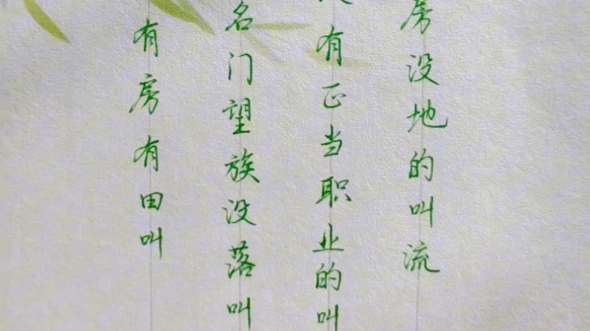 房没地的叫流
有正当职业的叫
名门望族没落叫
有房有田叫